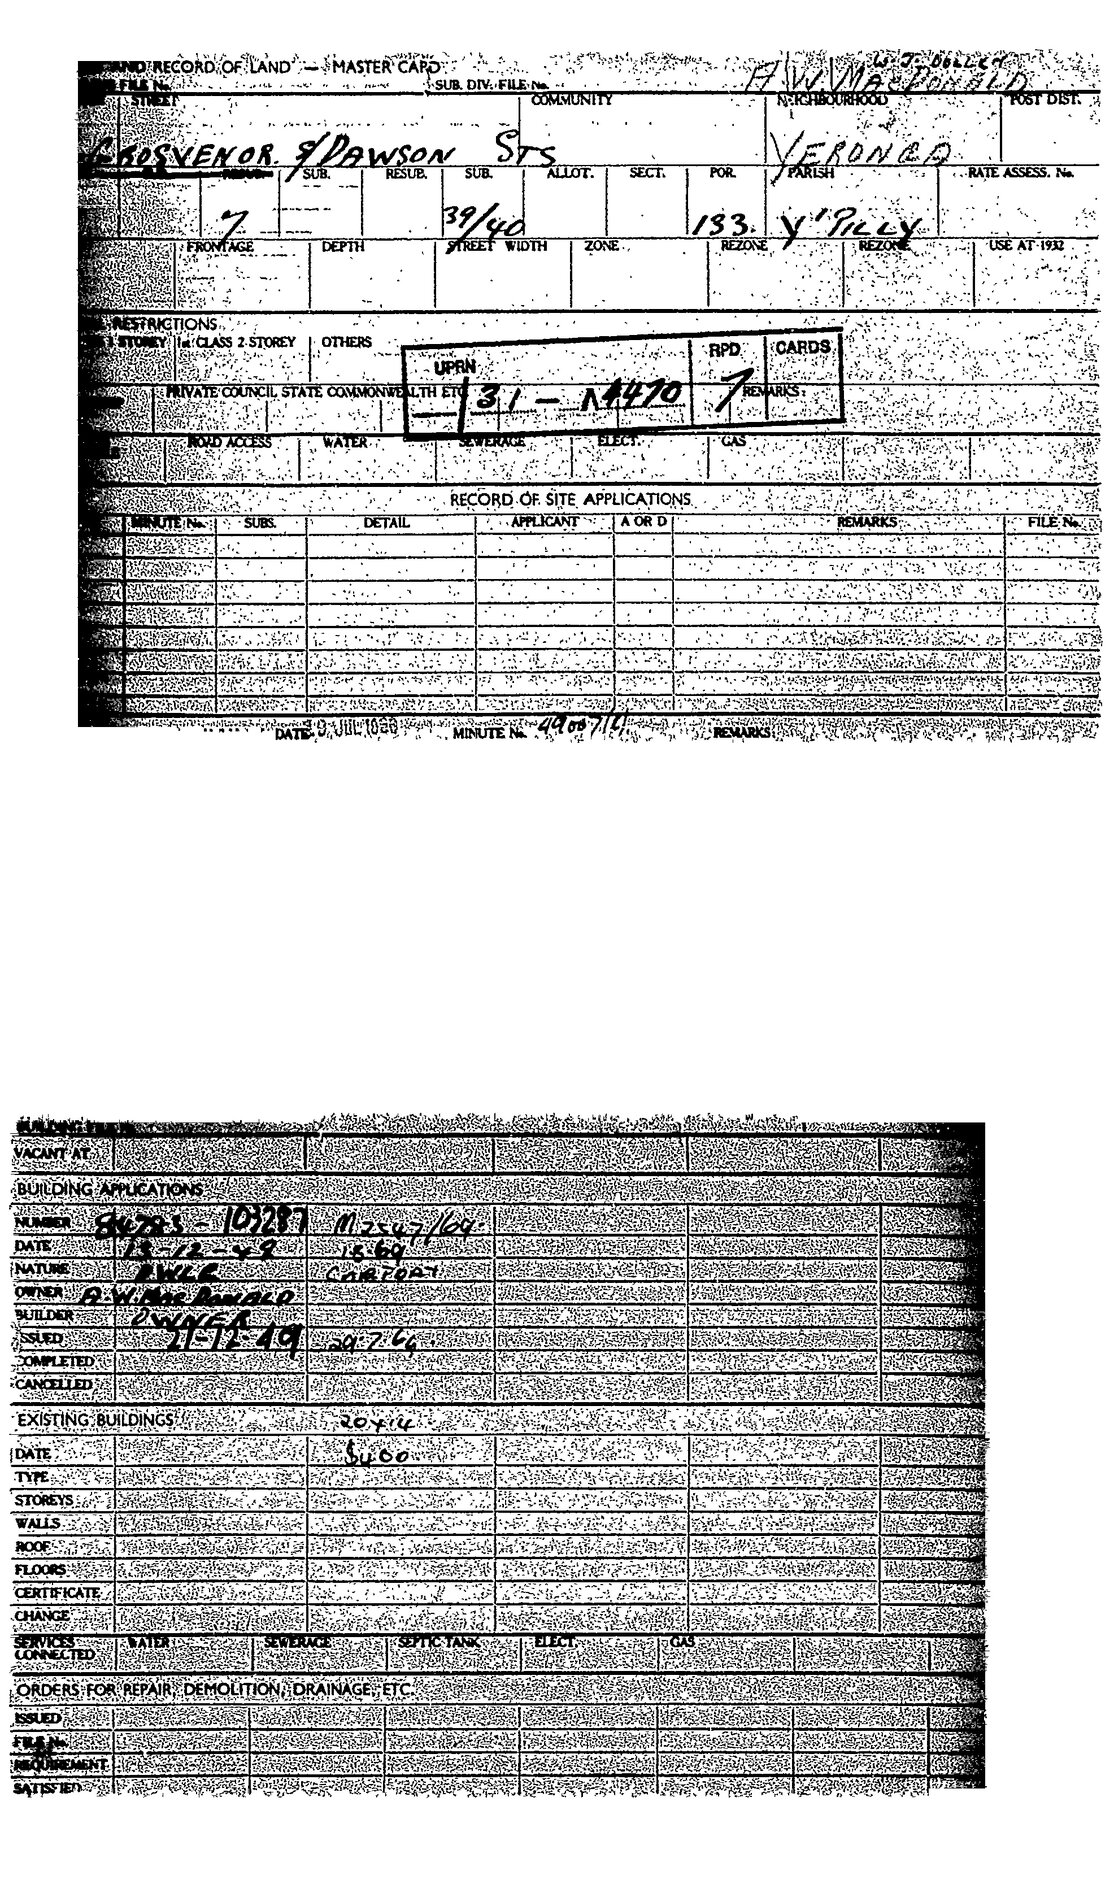 AND RECORD OF LAND — MASTER CARD
W. J. BULLEN
FILE No. SUB. DIV. FILE No. A. W. MACDONALD
STREET COMMUNITY NEIGHBOURHOOD POST DIST.
GROSVENOR & DAWSON STS YERONGA
RESUB. SUB. RESUB. SUB. ALLOT. SECT. POR. PARISH RATE ASSESS. No.
7 39/40 133. Y'PILLY
FRONTAGE DEPTH STREET WIDTH ZONE REZONE REZONE USE AT 1932
RESTRICTIONS
1 STOREY 1st CLASS 2 STOREY OTHERS
UPRN RPD CARDS
PRIVATE COUNCIL STATE COMMONWEALTH ETC REMARKS
7
ROAD ACCESS WATER SEWERAGE ELECT. GAS
RECORD OF SITE APPLICATIONS
MINUTE No. SUBS. DETAIL APPLICANT A OR D REMARKS FILE No.
DATE MINUTE No. REMARKS
BUILDING FILE No.
VACANT AT
BUILDING APPLICATIONS
NUMBER 84783 - 103287 M2547/69
DATE 13-12-49
NATURE DWLG CARPORT
OWNER A. W. MACDONALD
BUILDER OWNER
ISSUED 21-12-49 29 7 69
COMPLETED
CANCELLED
EXISTING BUILDINGS 20x14
DATE $400
TYPE
STOREYS
WALLS
ROOF
FLOORS
CERTIFICATE
CHANGE
SERVICES CONNECTED WATER SEWERAGE SEPTIC TANK ELECT. GAS
ORDERS FOR REPAIR, DEMOLITION, DRAINAGE, ETC.
ISSUED
FILE No.
REQUIREMENT
SATISFIED